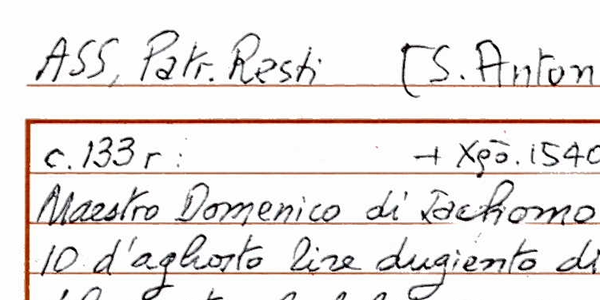 ASS, Patr. Resti [S. Anton
c. 133 r : + Xpo. 1540
Maestro Domenico di Iachomo
10 d'aghosto lire dugiento di